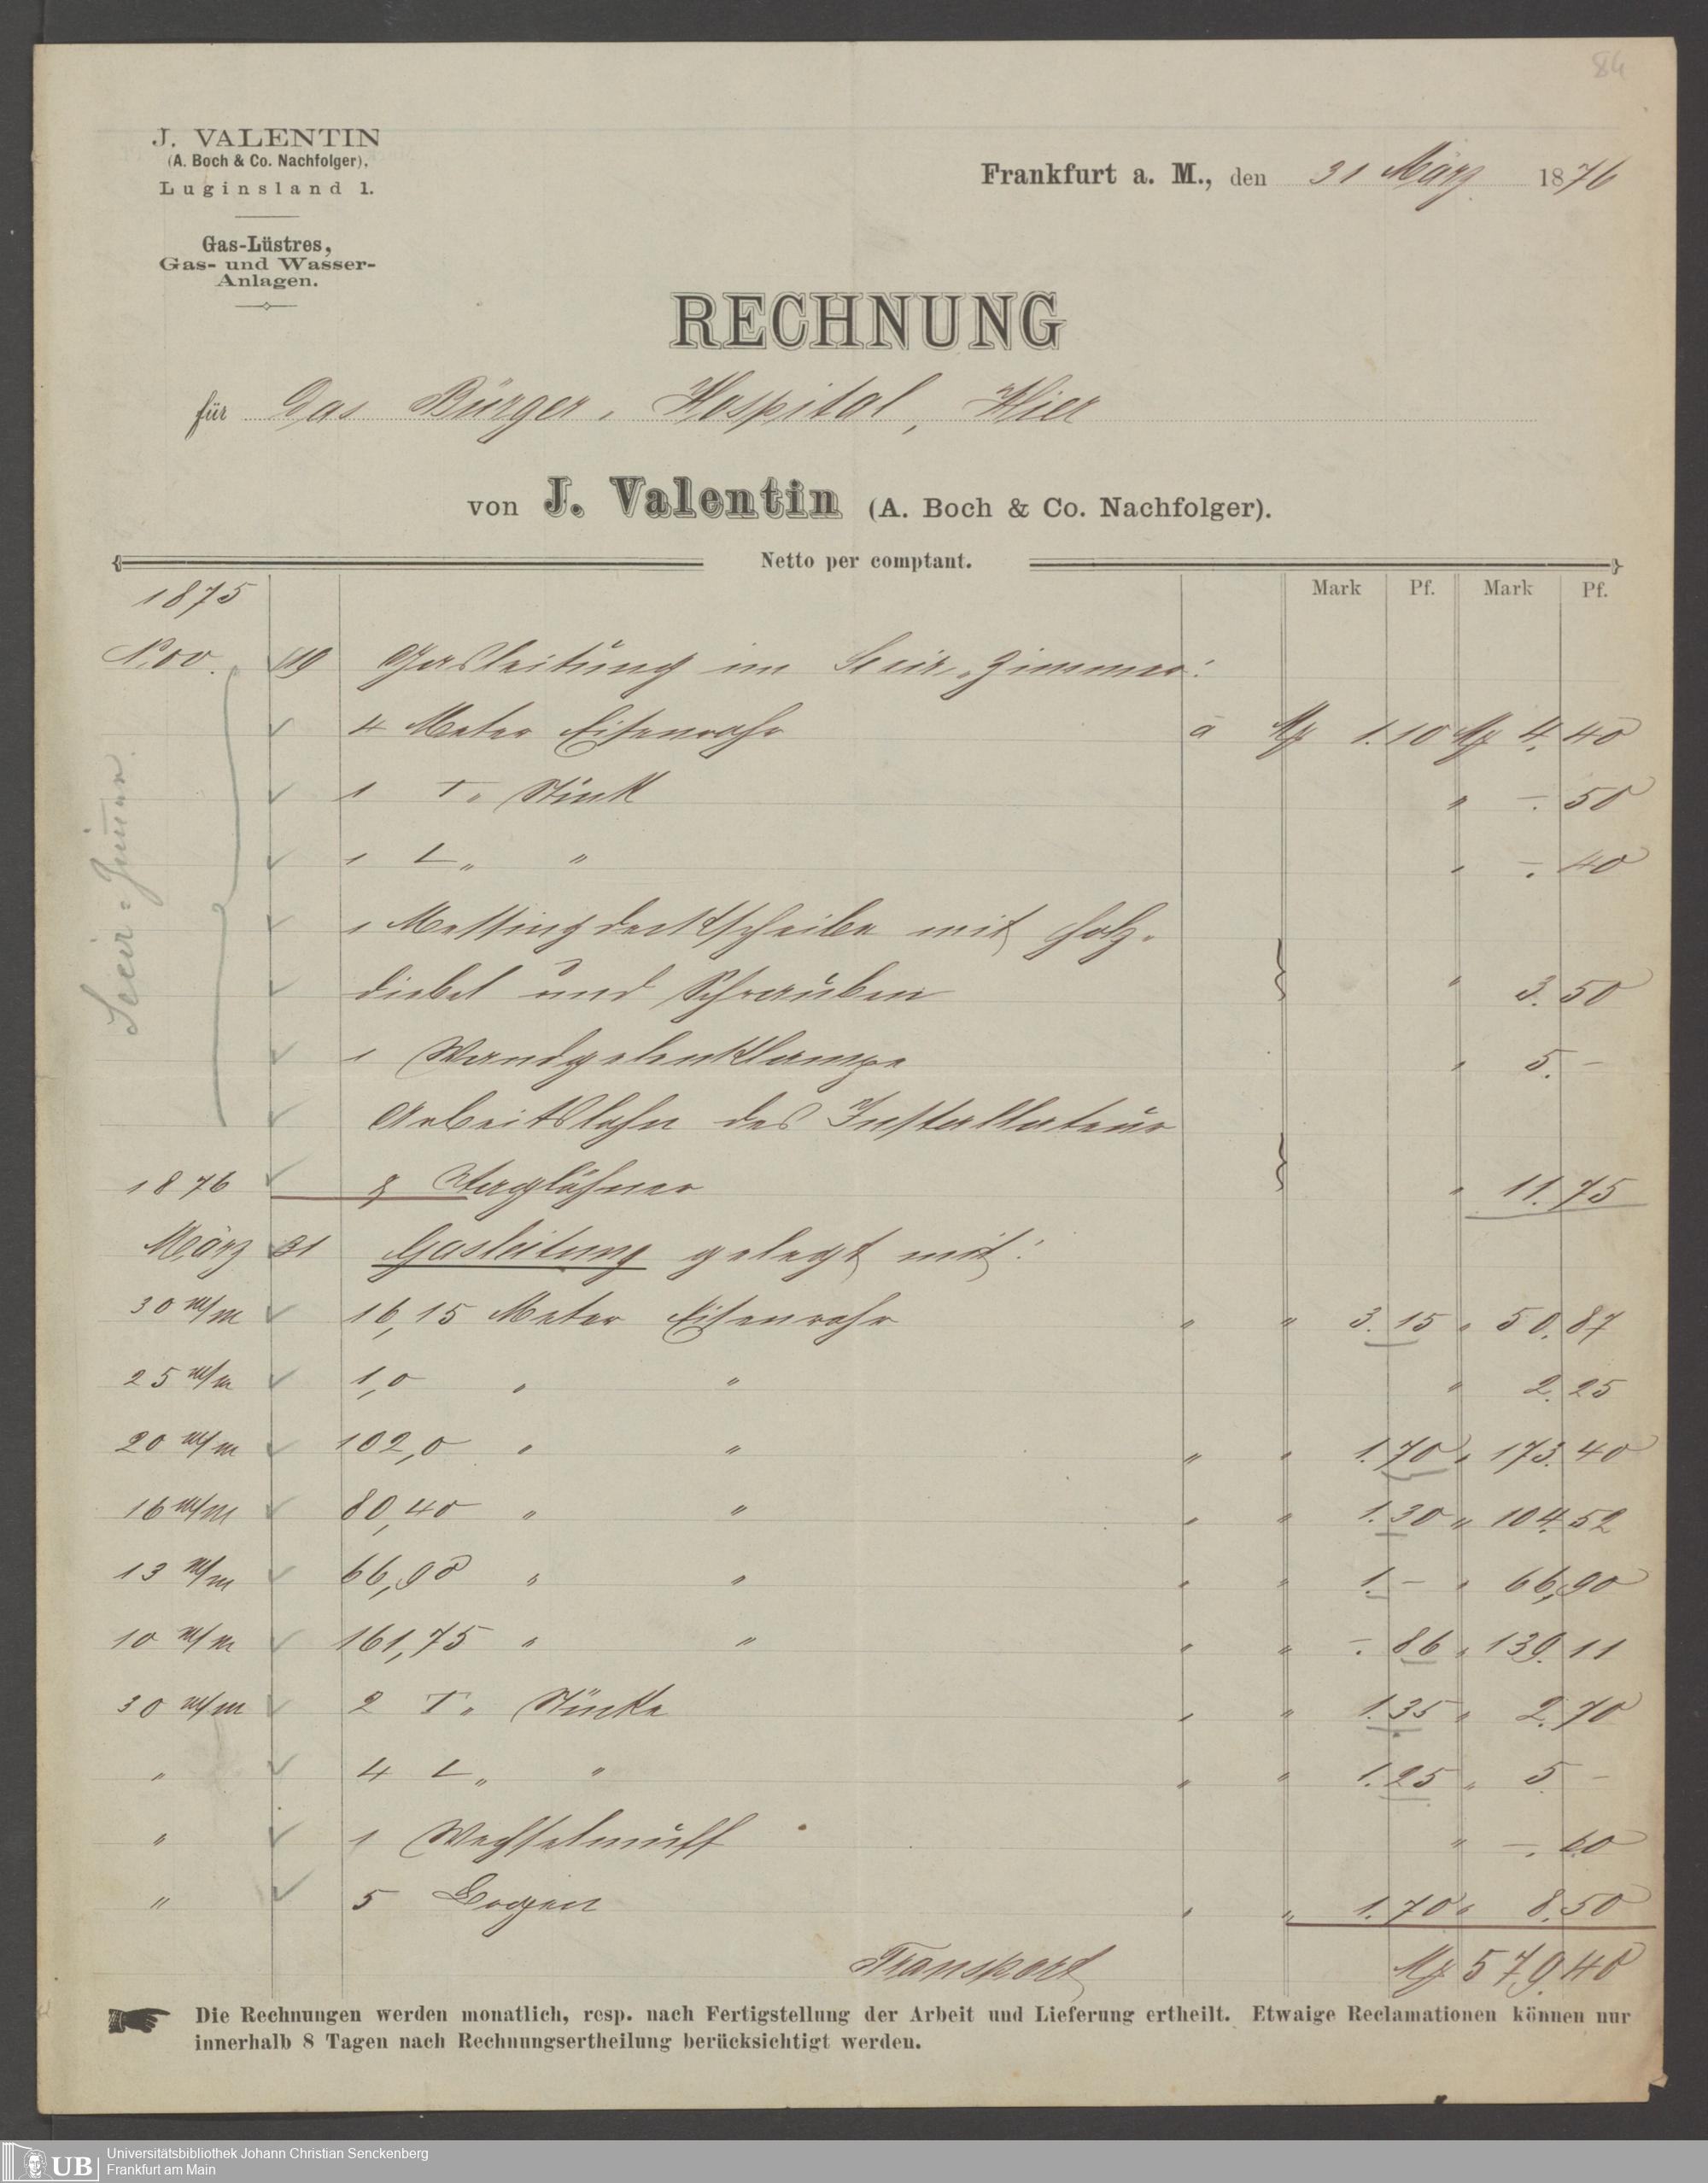 84
J. VALENTIN
(A. Boch & Co. Nachfolger),
Luginsland 1.
Gas-Lüstres,
Gas- und Wasser-
Anlagen.
Frankfurt a. M., den 31 März 1876
RECHNUNG
für das Bürger-Hospital, Hier
von J. Valentin (A. Boch & Co. Nachfolger).
Netto per comptant.
Mark Pf. Mark Pf.
1875
Nov. 19 Gasleitung im Secir-Zimmer:
4 Meter Eisenrohr à Mk 1.10 Mk 4.40
1 T-Stück " -.50
1 L- " " -.40
1 Messingdeckscheibe mit Holz-
diebel und Schrauben " 3.50
1 Wandgelenklampe " 5.-
Arbeitslohn des Installateur
1876 & Taglöhner " 11.75
März 31 Gasleitung gelegt mit:
30 m/m 16,15 Meter Eisenrohr " " 3.15 " 50.87
25 m/m 1,0 " " " 2.25
20 m/m 102,0 " " " " 1.70 " 173.40
16 m/m 80,40 " " " " 1.30 " 104.52
13 m/m 66,90 " " " " 1.- " 66,90
10 m/m 161,75 " " " " -.86 " 139.11
30 m/m 2 T-Stücke " " 1.35 " 2.70
" 4 L- " " " 1.25 " 5.-
" 1 Wechselmuff " -.60
" 5 Bogen " " 1.70 " 8.50
Transport Mk 579.40
Secir-Zimmer.
Die Rechnungen werden monatlich, resp. nach Fertigstellung der Arbeit und Lieferung ertheilt. Etwaige Reclamationen können nur
innerhalb 8 Tagen nach Rechnungsertheilung berücksichtigt werden.
UB
Universitätsbibliothek Johann Christian Senckenberg
Frankfurt am Main